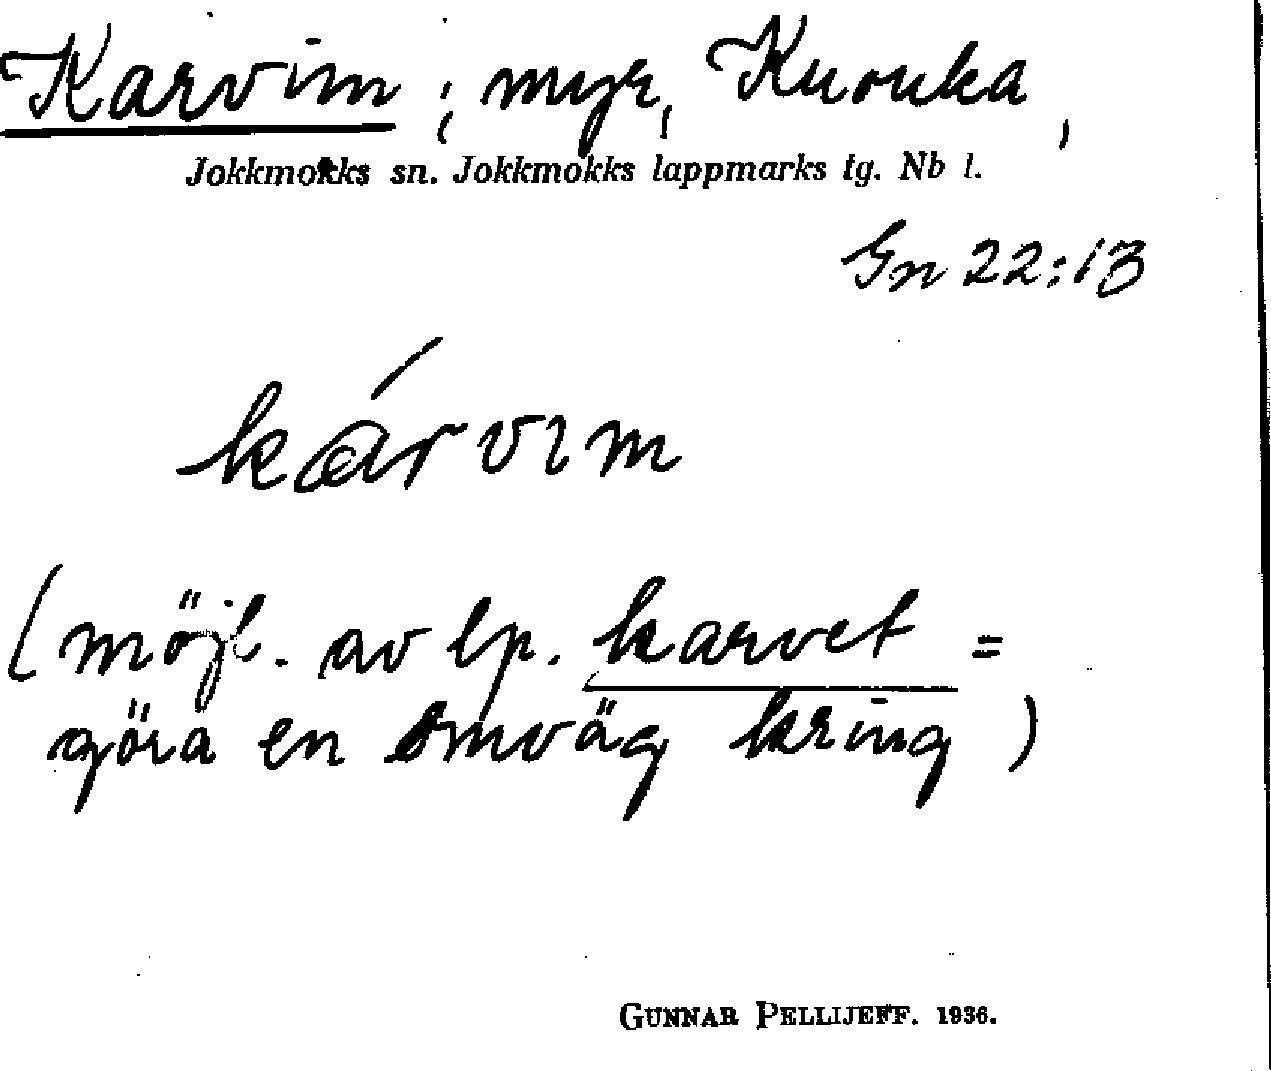 Karvim; myr, Kuouka,
Jokkmokks sn. Jokkmokks lappmarks tg. Nb l.
Gn 22:13
kárvım
(möjl. av lp. karvet =
göra en omväg kring)
GUNNAR PELLIJEFF. 1936.